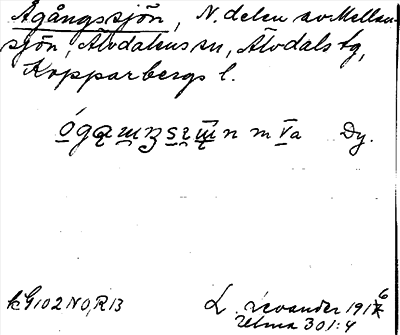 Ågångssjön, N. delen av Mellan-
sjön, Älvdalens sn, Älvdals tg,
Kopparbergs l.
Dy.
kG102NO,R13
L. Levander 1916
Ulma 301:4